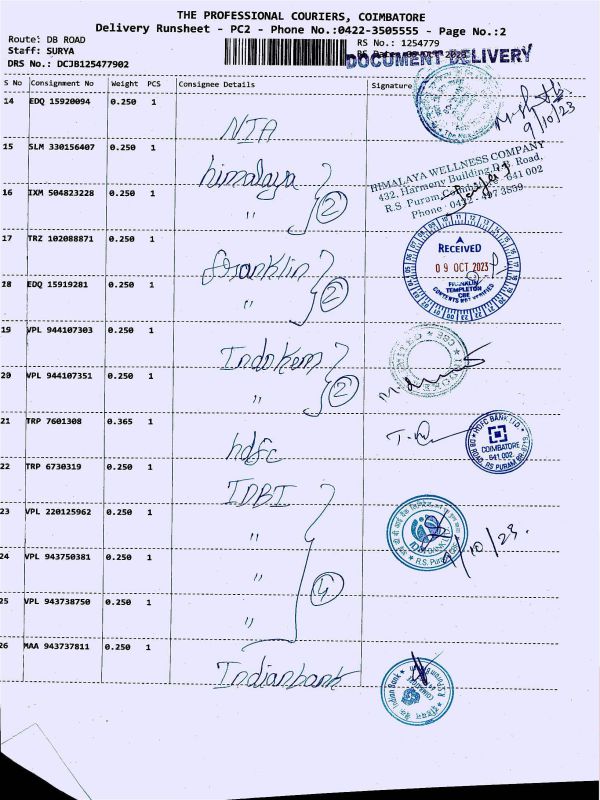 THE PROFESSIONAL COURIERS, COIMBATORE
Delivery Runsheet - PC2 - Phone No.:0422-3505555 - Page No.:2
Route: DB ROAD
Staff: SURYA
DRS No.: DCJB125477902
RS No.: 1254779
DOCUMENT DELIVERY
S No Consignment No Weight PCS Consignee Details Signature
14 EDQ 15920094 0.250 1
NIA
9/10/23
15 SLM 330156407 0.250 1
himalaya
HIMALAYA WELLNESS COMPANY
432, Harmony Building, D.B. Road,
R.S. Puram, 641 002
Phone : 0422 - 497 3839
16 IXM 504823228 0.250 1
" 2
17 TRZ 102088871 0.250 1
Franklin
RECEIVED
09 OCT 2023
FRANKLIN
TEMPLETON
CBE
CONTENTS NOT VERIFIED
18 EDQ 15919281 0.250 1
" 2
19 VPL 944107303 0.250 1
Indokem
20 VPL 944107351 0.250 1
" 2
21 TRP 7601308 0.365 1
hdfc
HDFC BANK LTD
COIMBATORE
641 002
22 TRP 6730319 0.250 1
IDBI
23 VPL 220125962 0.250 1
"
IDBI BANK
R.S. Puram
9/10/23.
24 VPL 943750381 0.250 1
" 4
25 VPL 943738750 0.250 1
"
26 MAA 943737811 0.250 1
Indianbank
Indian Bank